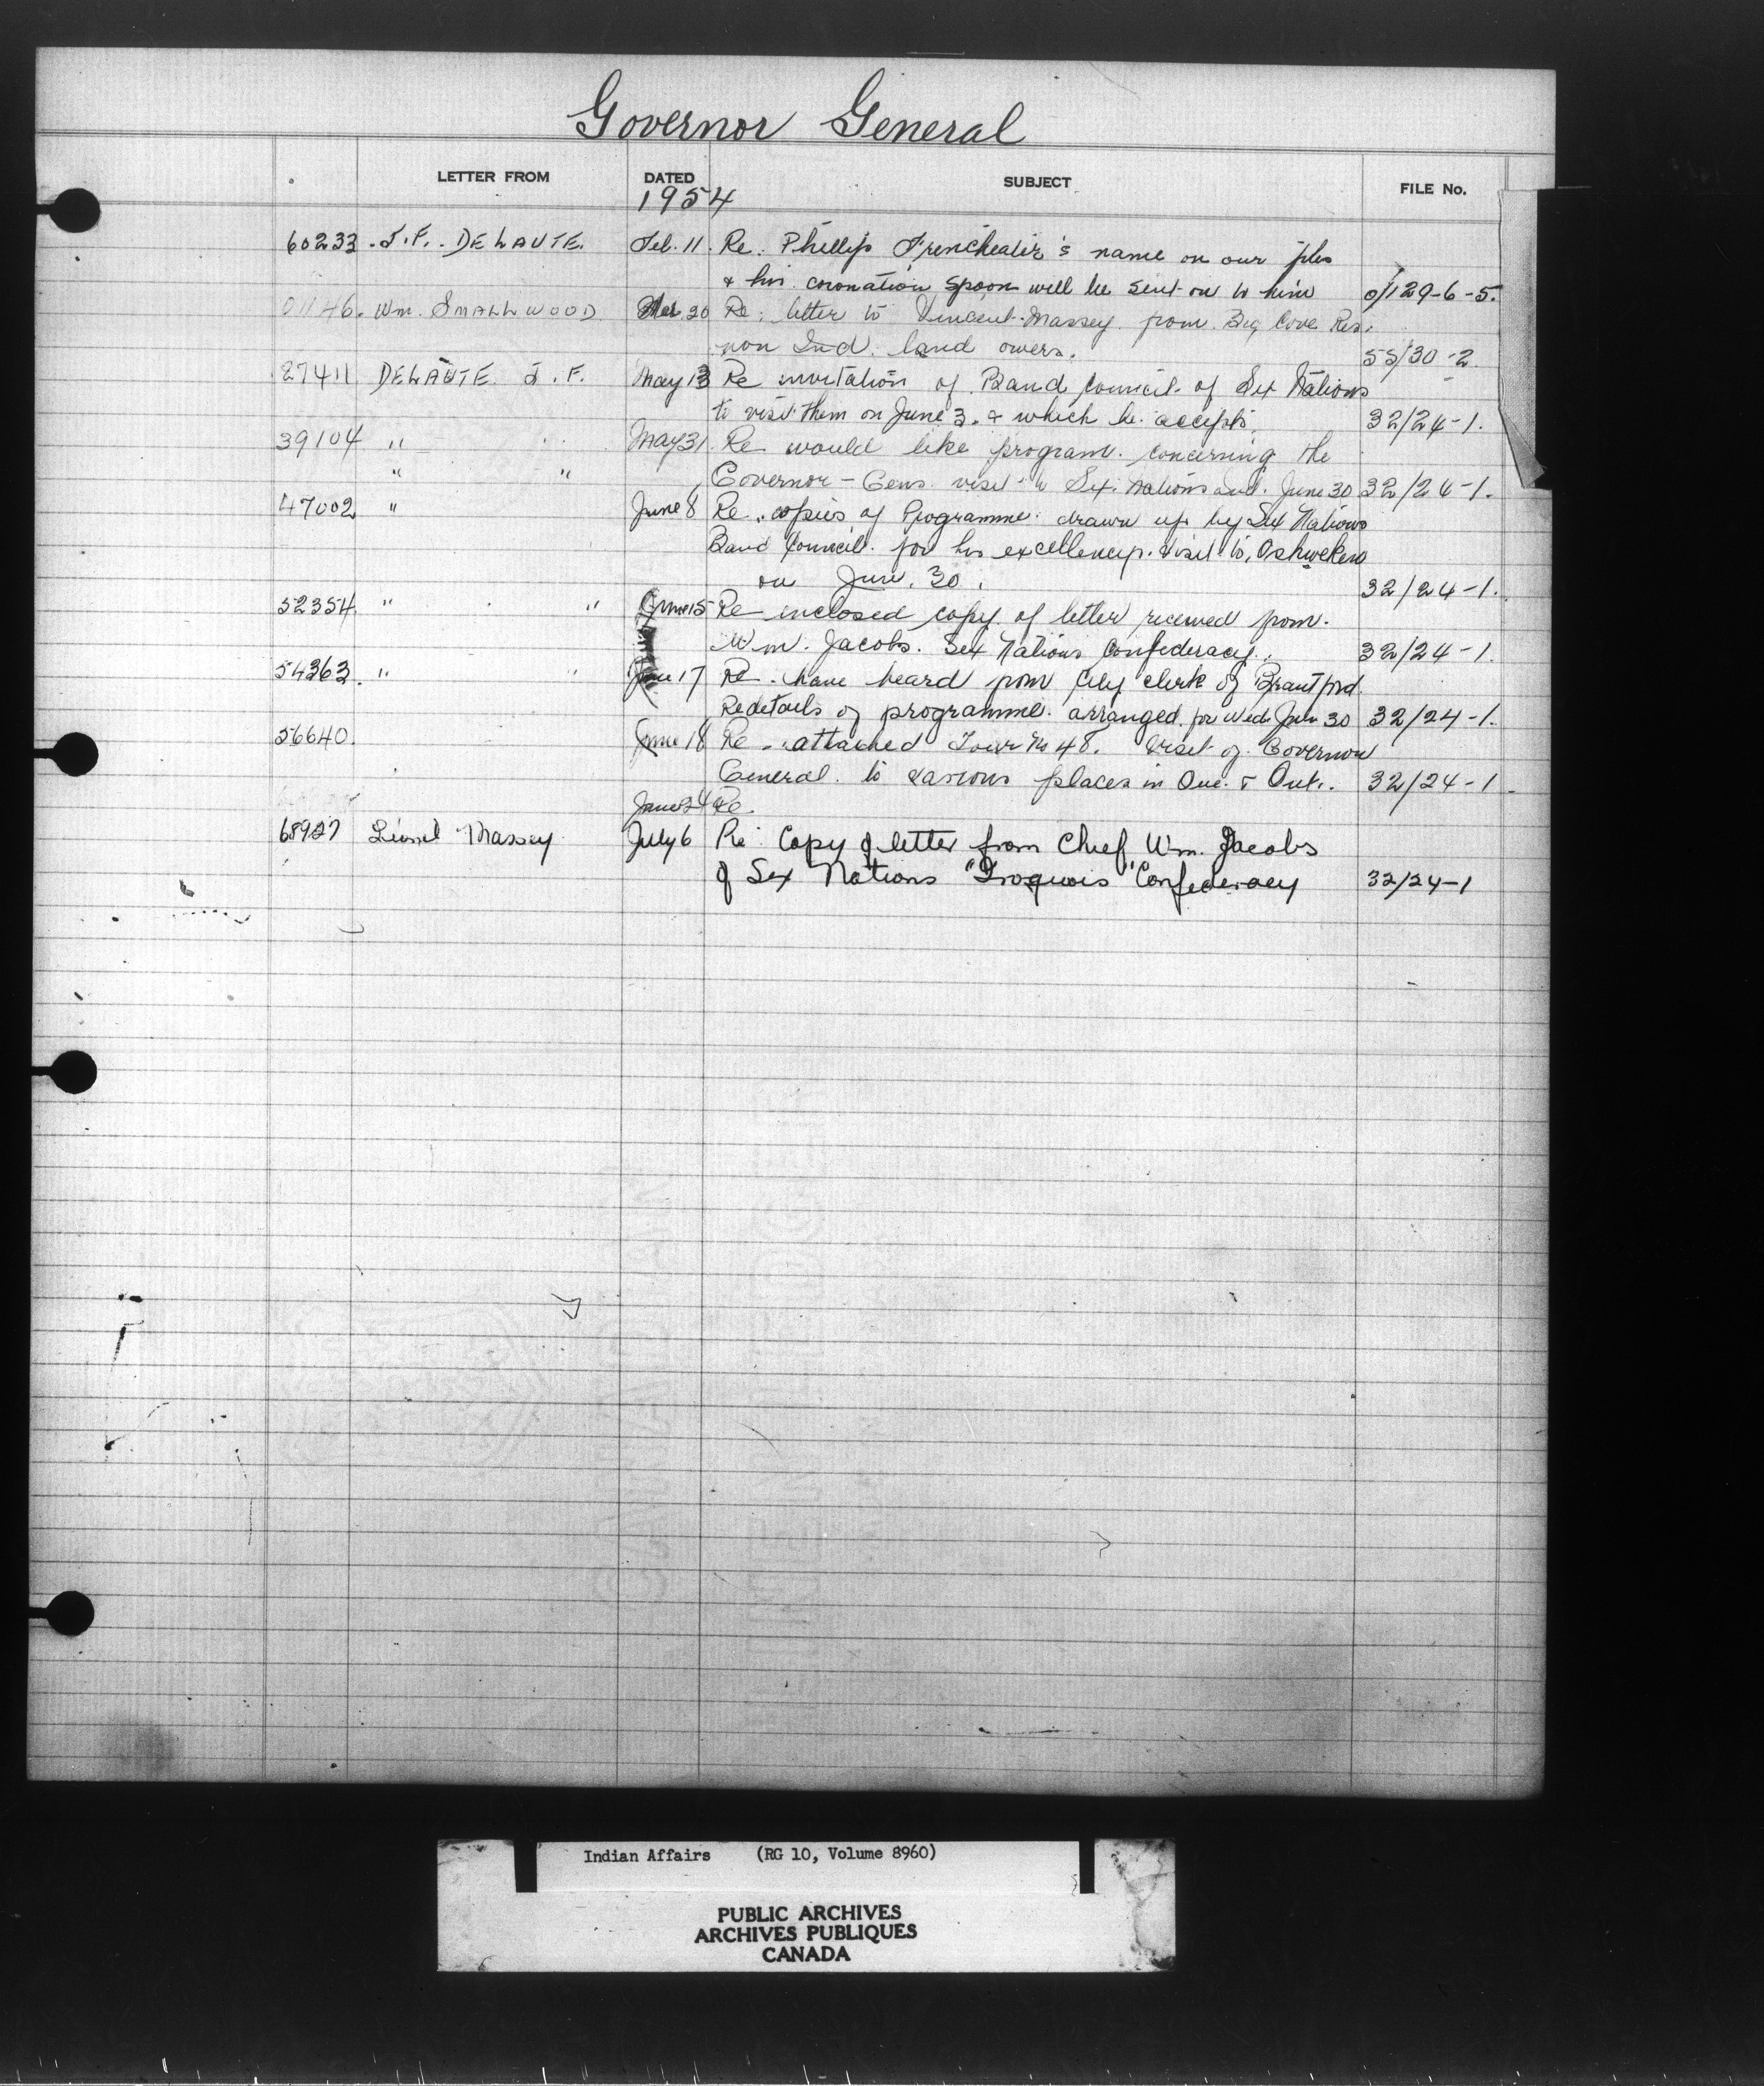 Governor General
LETTER FROM DATED SUBJECT FILE No.
1954
60233 J.F. DELAUTE. Feb. 11. Re: Phillip Frencheater's name on our files
& his coronation spoon will be sent on to him 0/129-6-5.
01146. Wm. SMALLWOOD 20 Re: letter to Vincent Massey from Big Cove Res.
non Ind. land owers. 55/30-2
27411 DELAUTE J.F. May 13 Re invitation of Band Council of Six Nations
to visit them on June 3. & which he accepts. 32/24-1.
39104 " May 31 Re would like program concerning the
" " Governor-Gens. visit to Six Nations and. June 30 32/24-1.
47002 " June 8 Re copies of Programme drawn up by Six Nations
Band Council for his excellency. Visit to, Oshweken
on June. 30. 32/24-1.
52354 " " June 15 Re inclosed copy of letter received from.
Wm. Jacobs. Six Nations Confederacy. 32/24-1.
54363. " " June 17 Re. have heard from City clerk of Brantford
Re details of programme arranged for Wed. June 30 32/24-1.
56640. June 18 Re attached Tour No 48. Visit of Governor
General to various places in Que. & Ont. 32/24-1.
June 24 Re
68927 Lionel Massey July 6 Re: Copy of letter from Chief Wm. Jacobs
of Six Nations "Iroquois" Confederacy 32/24-1
Indian Affairs (RG 10, Volume 8960)
PUBLIC ARCHIVES
ARCHIVES PUBLIQUES
CANADA